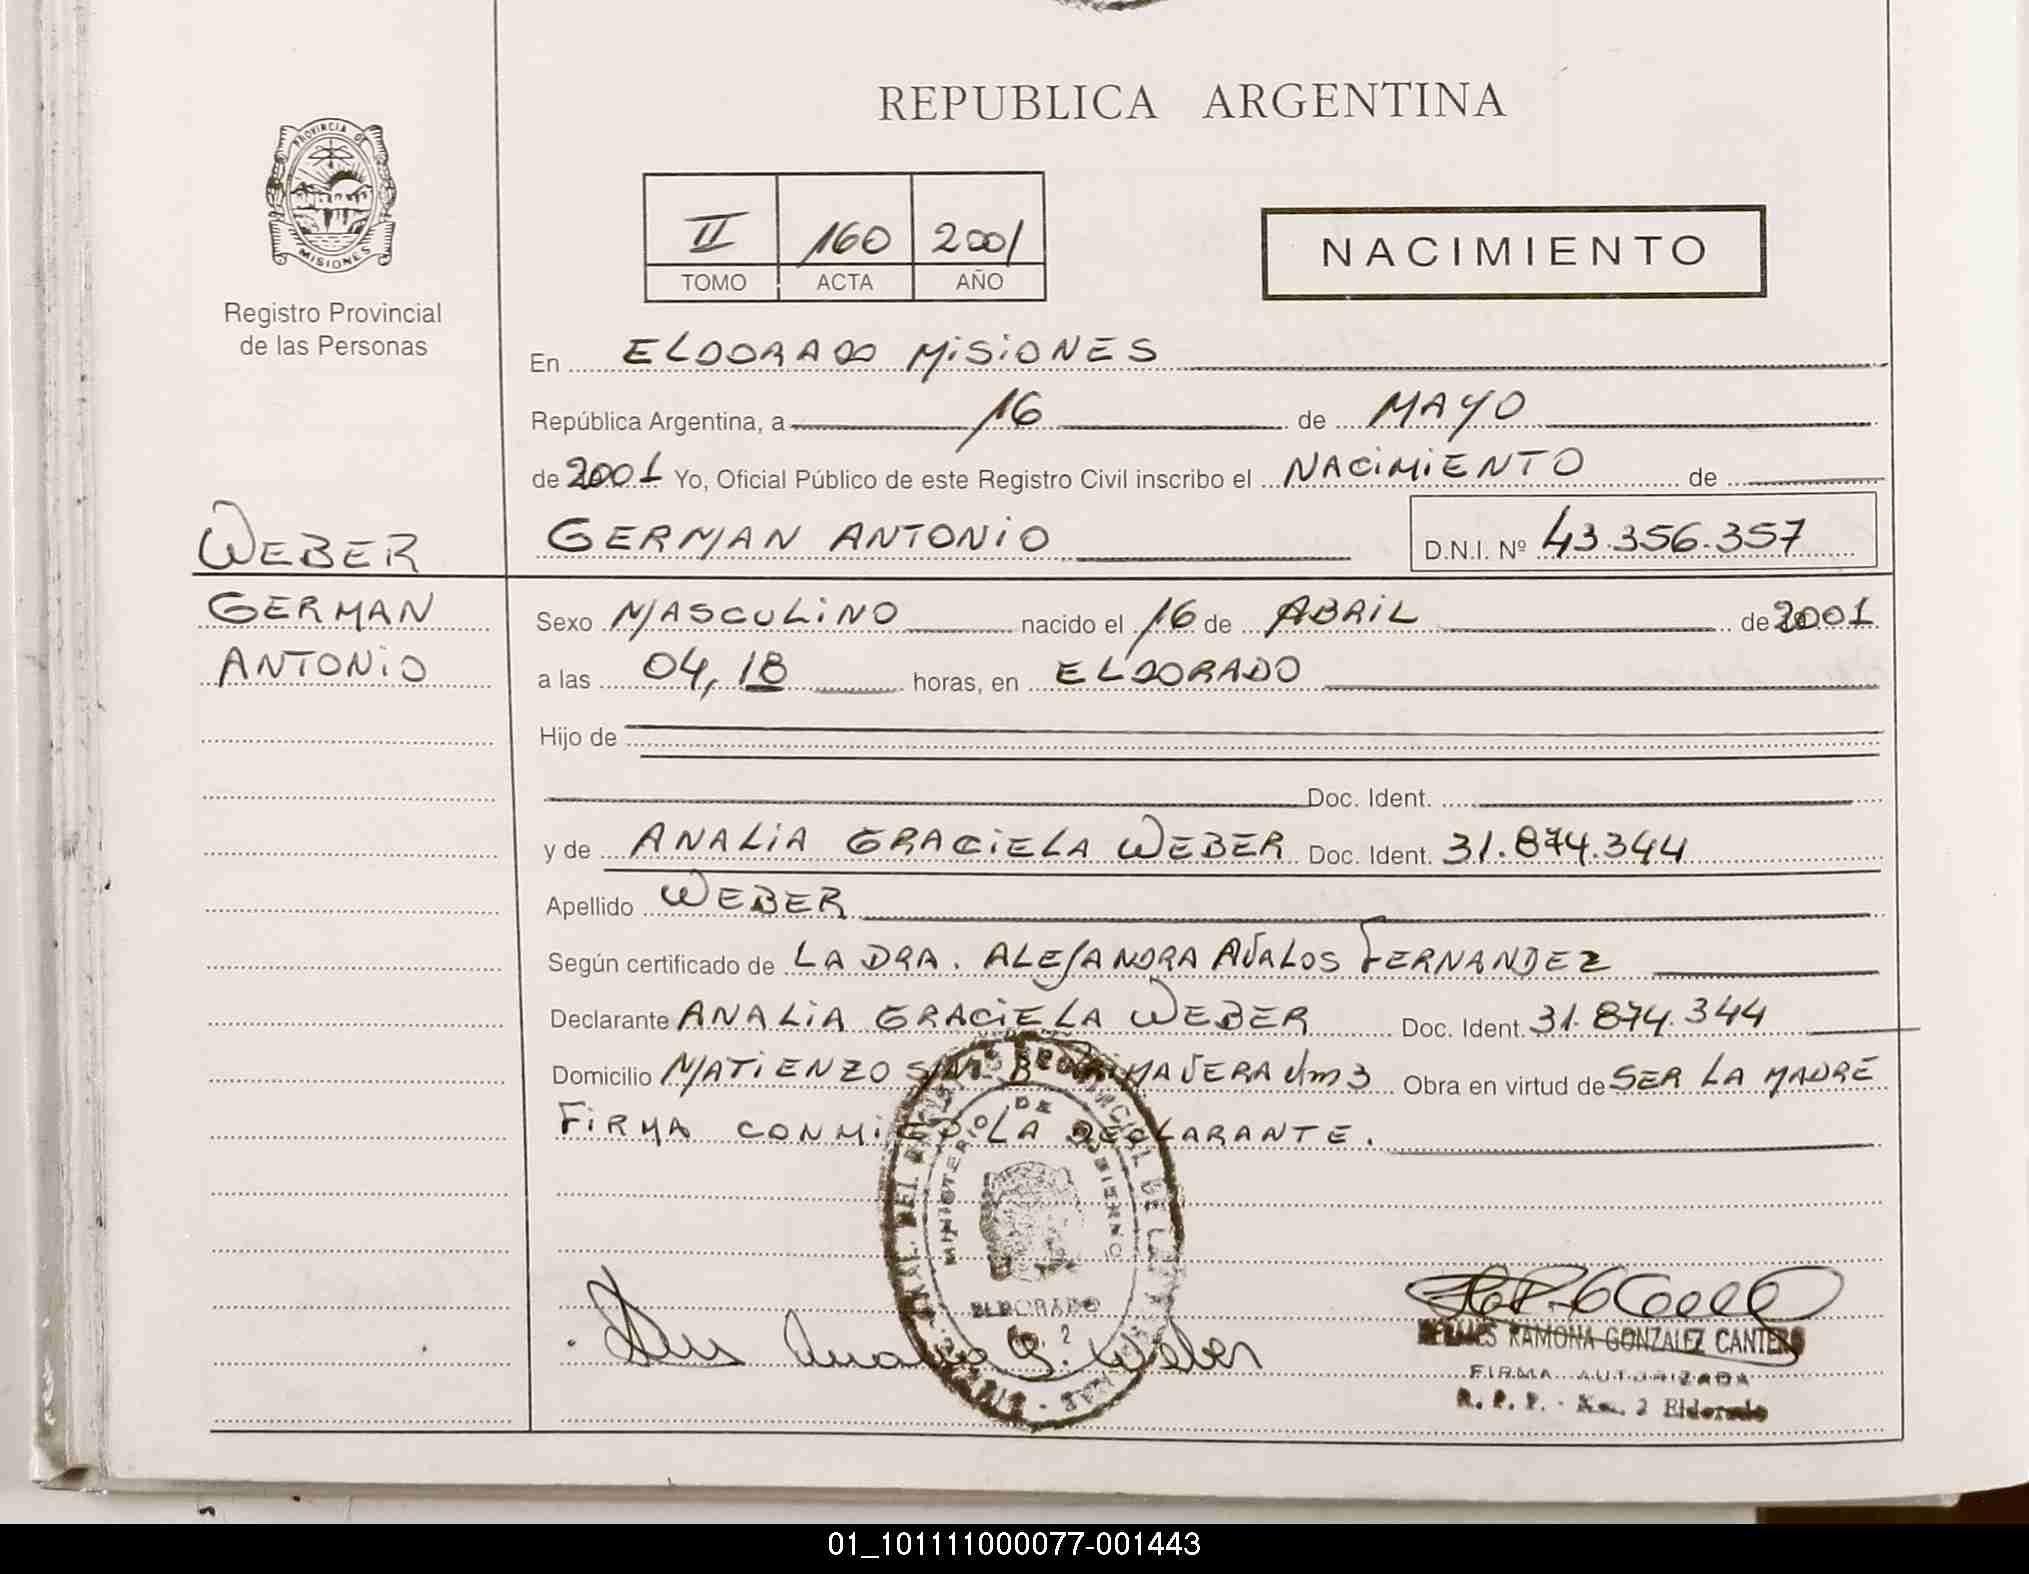 REPUBLICA ARGENTINA
PROVINCIA DE
MISIONES
Registro Provincial
de las Personas
II 160 2001
TOMO ACTA AÑO
NACIMIENTO
En ELDORADO MISIONES
República Argentina, a 16 de MAYO
de 2001 Yo, Oficial Público de este Registro Civil inscribo el NACIMIENTO de
WEBER
GERMAN ANTONIO D.N.I. Nº 43.356.357
GERMAN
ANTONIO
Sexo MASCULINO nacido el 16 de ABRIL de 2001
a las 04,18 horas, en ELDORADO
Hijo de
Doc. Ident.
y de ANALIA GRACIELA WEBER Doc. Ident. 31.874.344
Apellido WEBER
Según certificado de LA DRA. ALEJANDRA AVALOS FERNANDEZ
Declarante ANALIA GRACIELA WEBER Doc. Ident. 31.874.344
Domicilio MATIENZO S/N Bº PRIMAVERA Km 3 Obra en virtud de SER LA MADRE
FIRMA CONMIGO LA DECLARANTE.
MINISTERIO DE GOBIERNO
ELDORADO
2
Analia G. Weber
RAMONA GONZALEZ CANTERO
FIRMA AUTORIZADA
R. P. P. - Km. 2 Eldorado
01_101111000077-001443